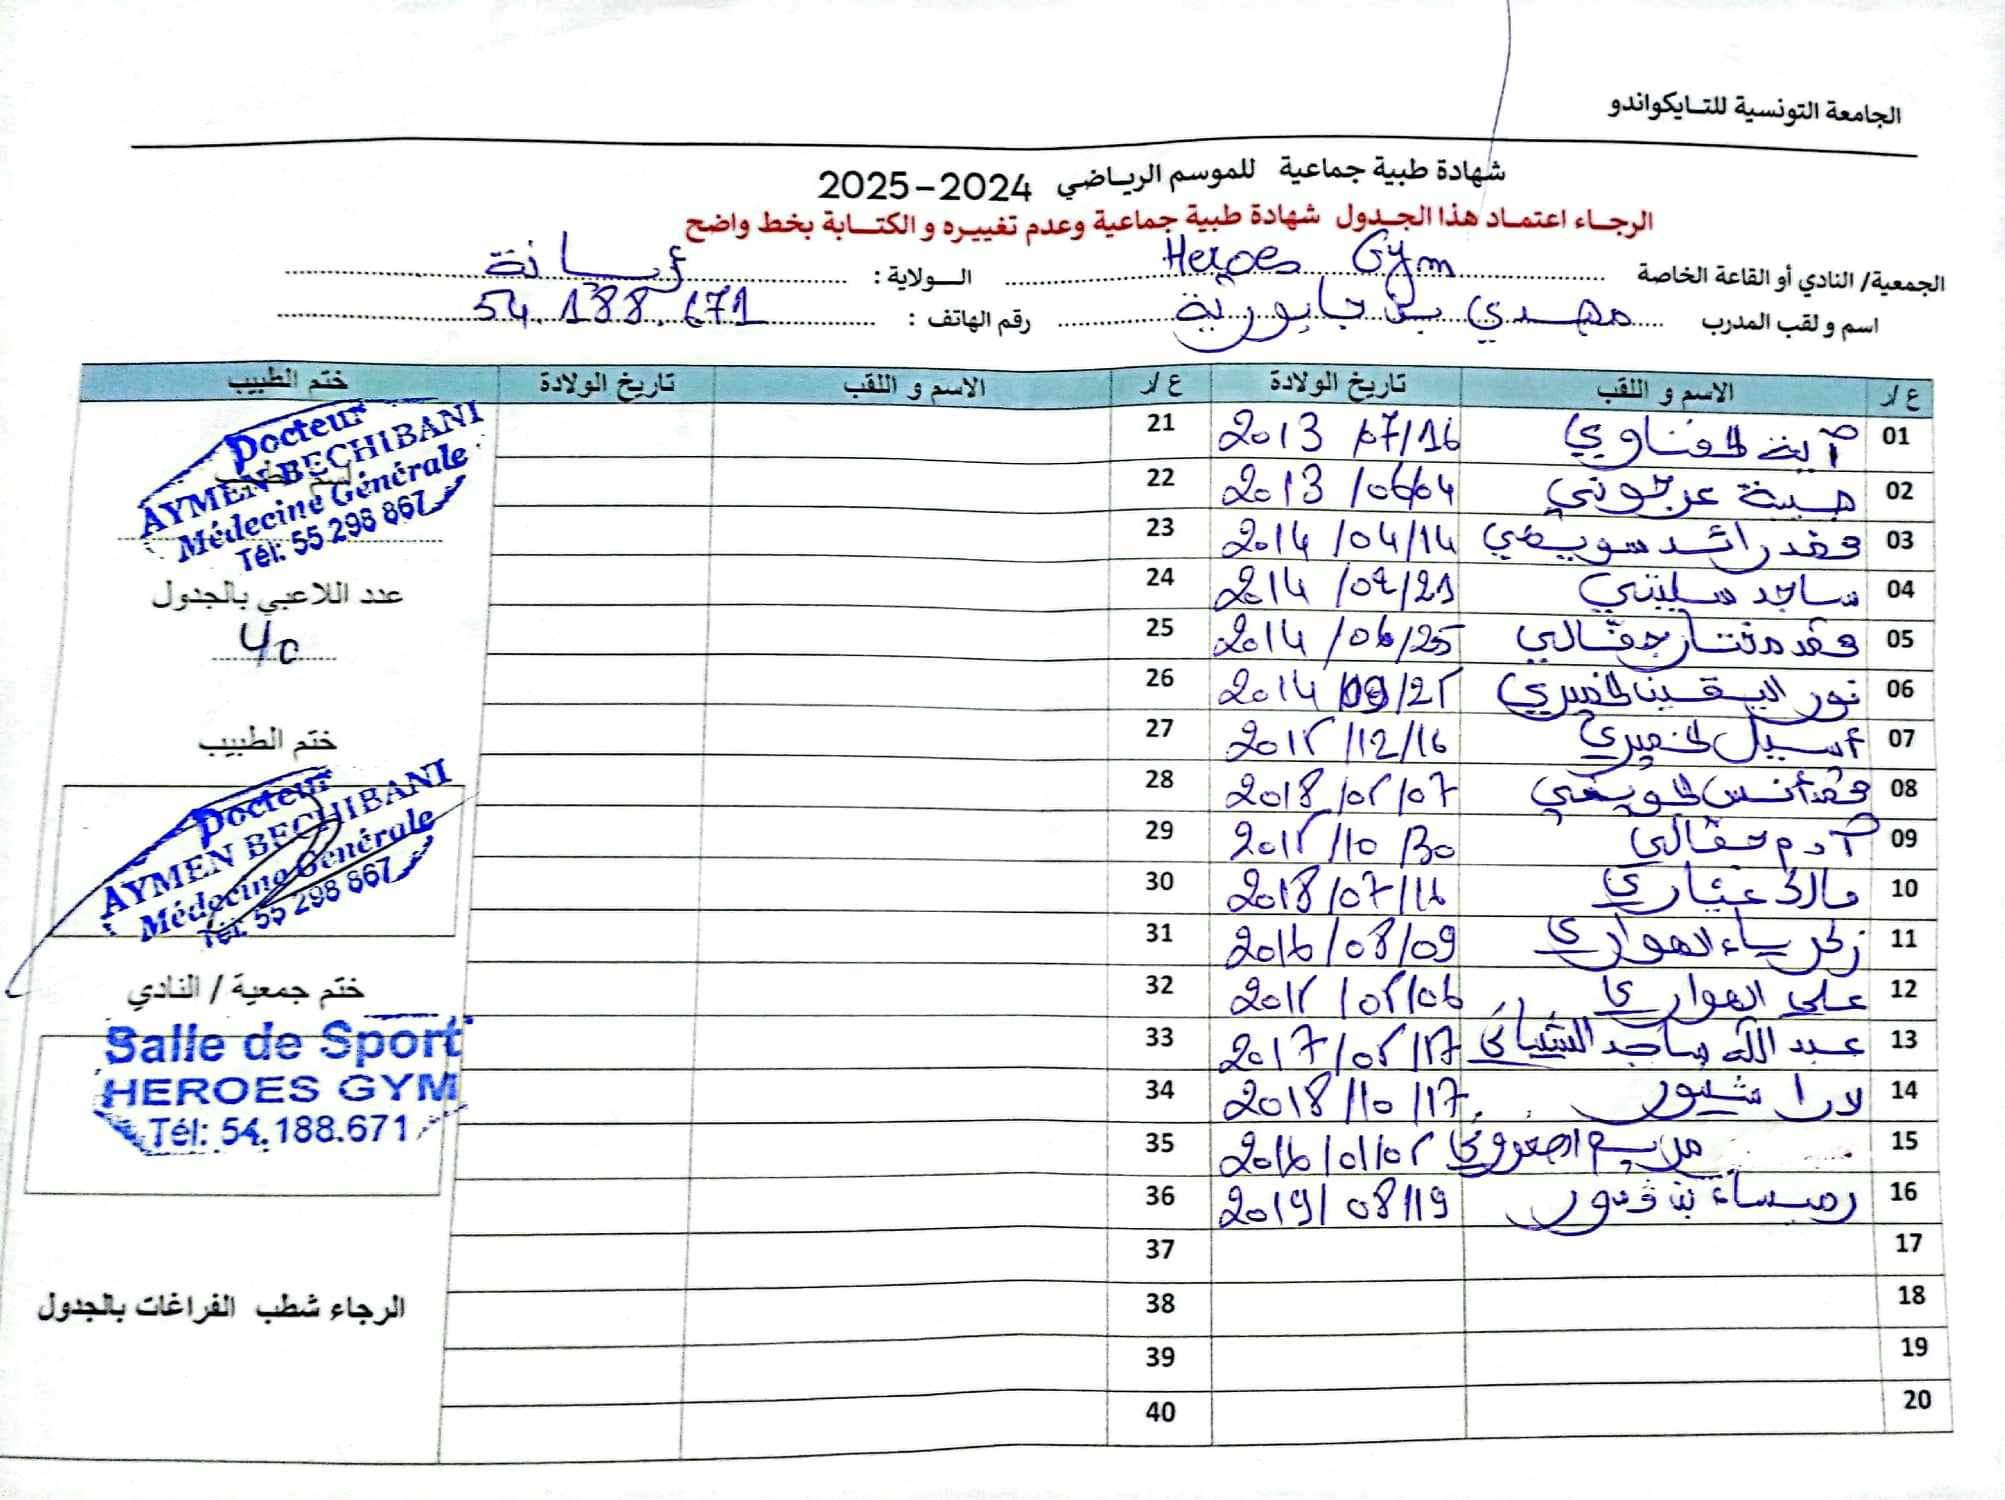 الجامعة التونسية للتايكواندو
شهادة طبية جماعية للموسم الرياضي 2024-2025
الرجاء اعتماد هذا الجدول شهادة طبية جماعية وعدم تغييره و الكتابة بخط واضح
الجمعية/ النادي أو القاعة الخاصة Heroes Gym الولاية :
اسم و لقب المدرب مهدي بن جابورية رقم الهاتف : 54.188.671
ع/ر الاسم و اللقب تاريخ الولادة ع/ر الاسم و اللقب تاريخ الولادة ختم الطبيب
01 آية 2013/07/16 21
02 هبة عرجوني 2013/06/04 22
03 رائد سويسي 2014/04/14 23
04 ساجد سليتي 2014/02/21 24
05 2014/06/25 25
06 نور اليقين الخميري 2014 26
07 أسيل الخميري 27
08 أنس 2018 28
09 آدم 29
10 مالك عياري 2018/07/16 30
11 زكرياء الهواري 2016/08/09 31
12 علي الهواري 32
13 عبد الله ساجد الشيباني 2017 33
14 لارا 2018/10/17 34
15 مريم 2016/01 35
16 رميساء بن 2019/08/19 36
17 37
18 38
19 39
20 40
Docteur
AYMEN BECHIBANI
Médecine Générale
Tél: 55 298 867
عدد اللاعبي بالجدول
40
ختم الطبيب
Docteur
AYMEN BECHIBANI
Médecine Générale
Tél: 55 298 867
ختم جمعية / النادي
Salle de Sport
HEROES GYM
Tél: 54.188.671
الرجاء شطب الفراغات بالجدول